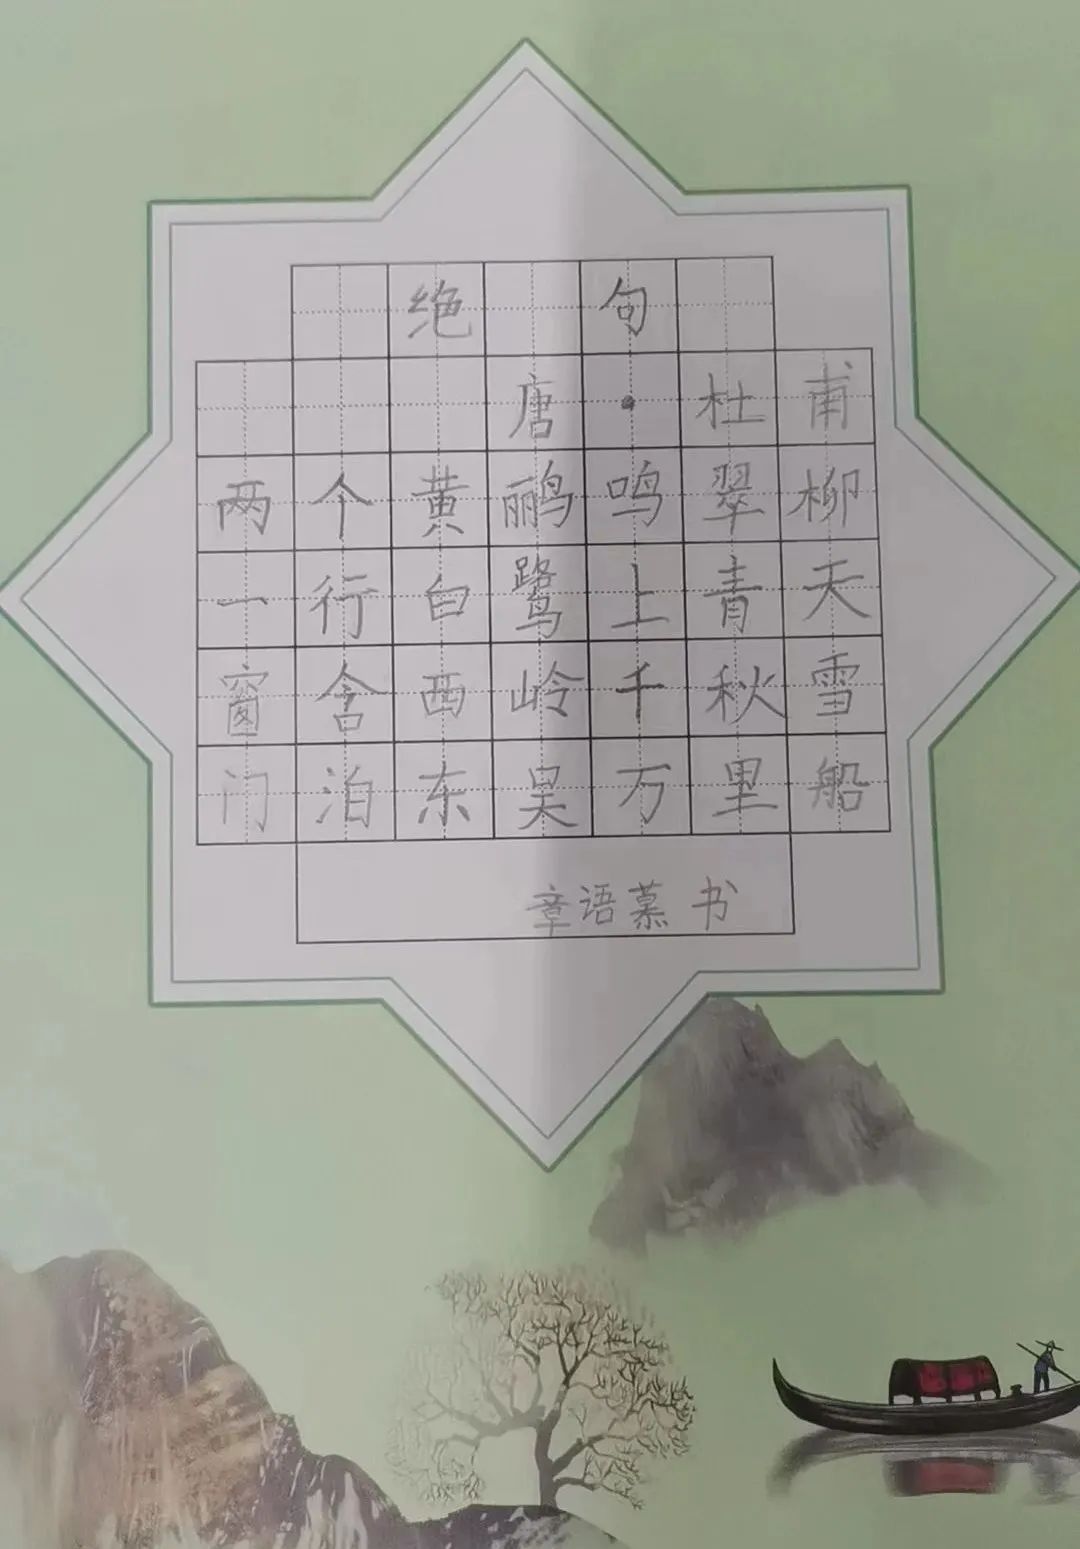 绝句
唐·杜甫
两个黄鹂鸣翠柳
一行白鹭上青天
窗含西岭千秋雪
门泊东吴万里船
章语慕 书